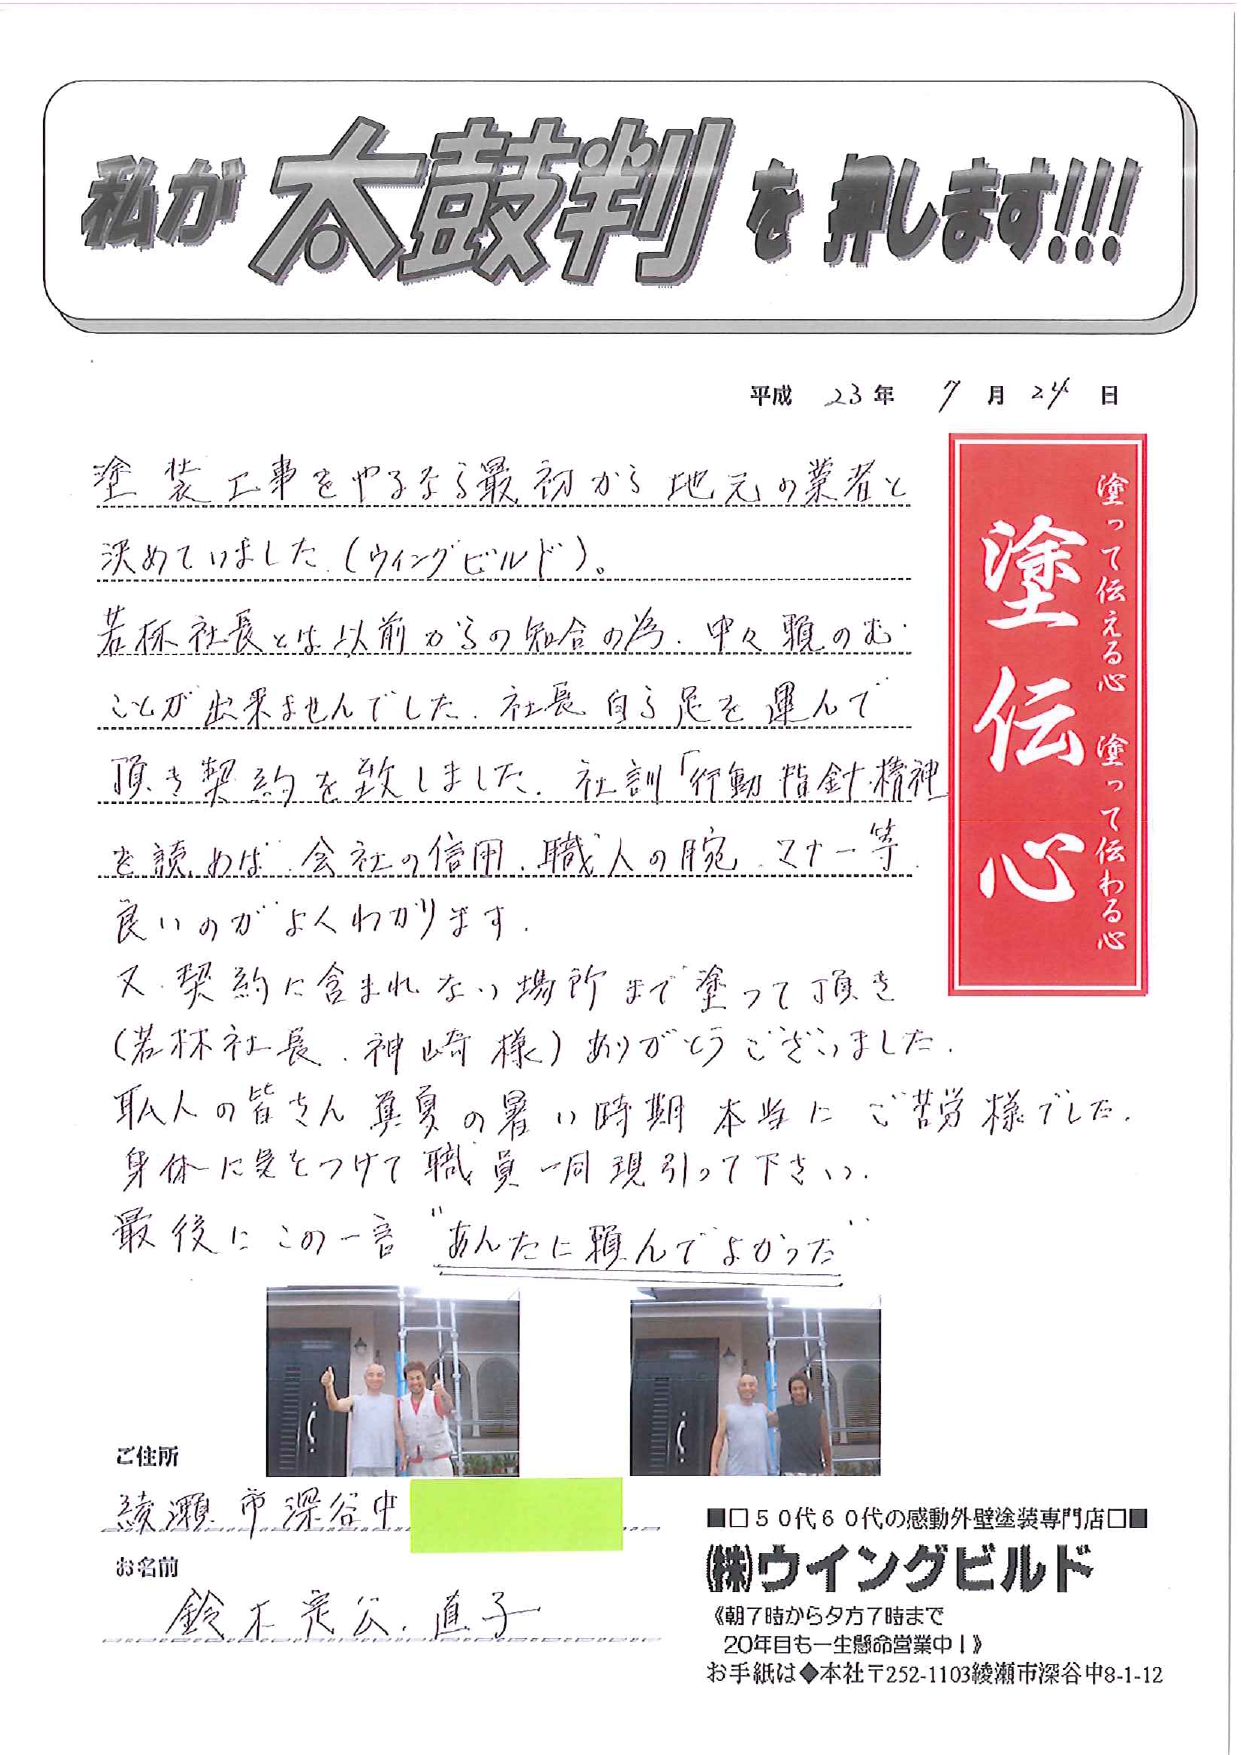 私が太鼓判を押します!!!
平成 23年 7月 24日
塗装工事をやるなら最初から地元の業者と
決めていました(ウイングビルド)。
若林社長とは以前からの知合の為、中々頼のむ
ことが出来ませんでした。社長自ら足を運んで
頂き契約を致しました。社訓「行動指針・精神
を読めば、会社の信用、職人の腕、マナー等
良いのがよくわかります。
又、契約に含まれない場所まで塗って頂き
(若林社長、神崎様)ありがとうございました。
職人の皆さん真夏の暑い時期本当にご苦労様でした。
身体に気をつけて職員一同 引って下さい。
最後にこの一言"あんたに頼んでよかった"
塗って伝える心 塗って伝わる心
塗伝心
ご住所
綾瀬市深谷中
お名前
鈴木 公、直子
■□50代60代の感動外壁塗装専門店□■
㈱ウイングビルド
《朝7時から夕方7時まで
20年目も一生懸命営業中!》
お手紙は◆本社〒252-1103綾瀬市深谷中8-1-12